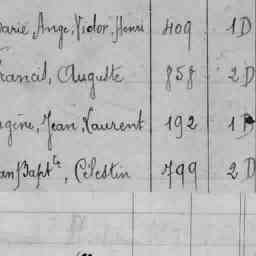 Marie, Ange, Victor, Henri 409 1 D
Francis, Auguste 858 2 D
Eugène, Jean, Laurent 192 1 D
Jean Bapte, Célestin 799 2 D